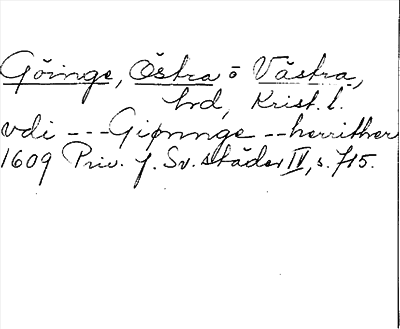 Göinge, Östra o Västra,
hd, Krist. l.
vdi --- Giønnge -- herrither
1609 Priv. f. Sv. städer IV, s. 715.